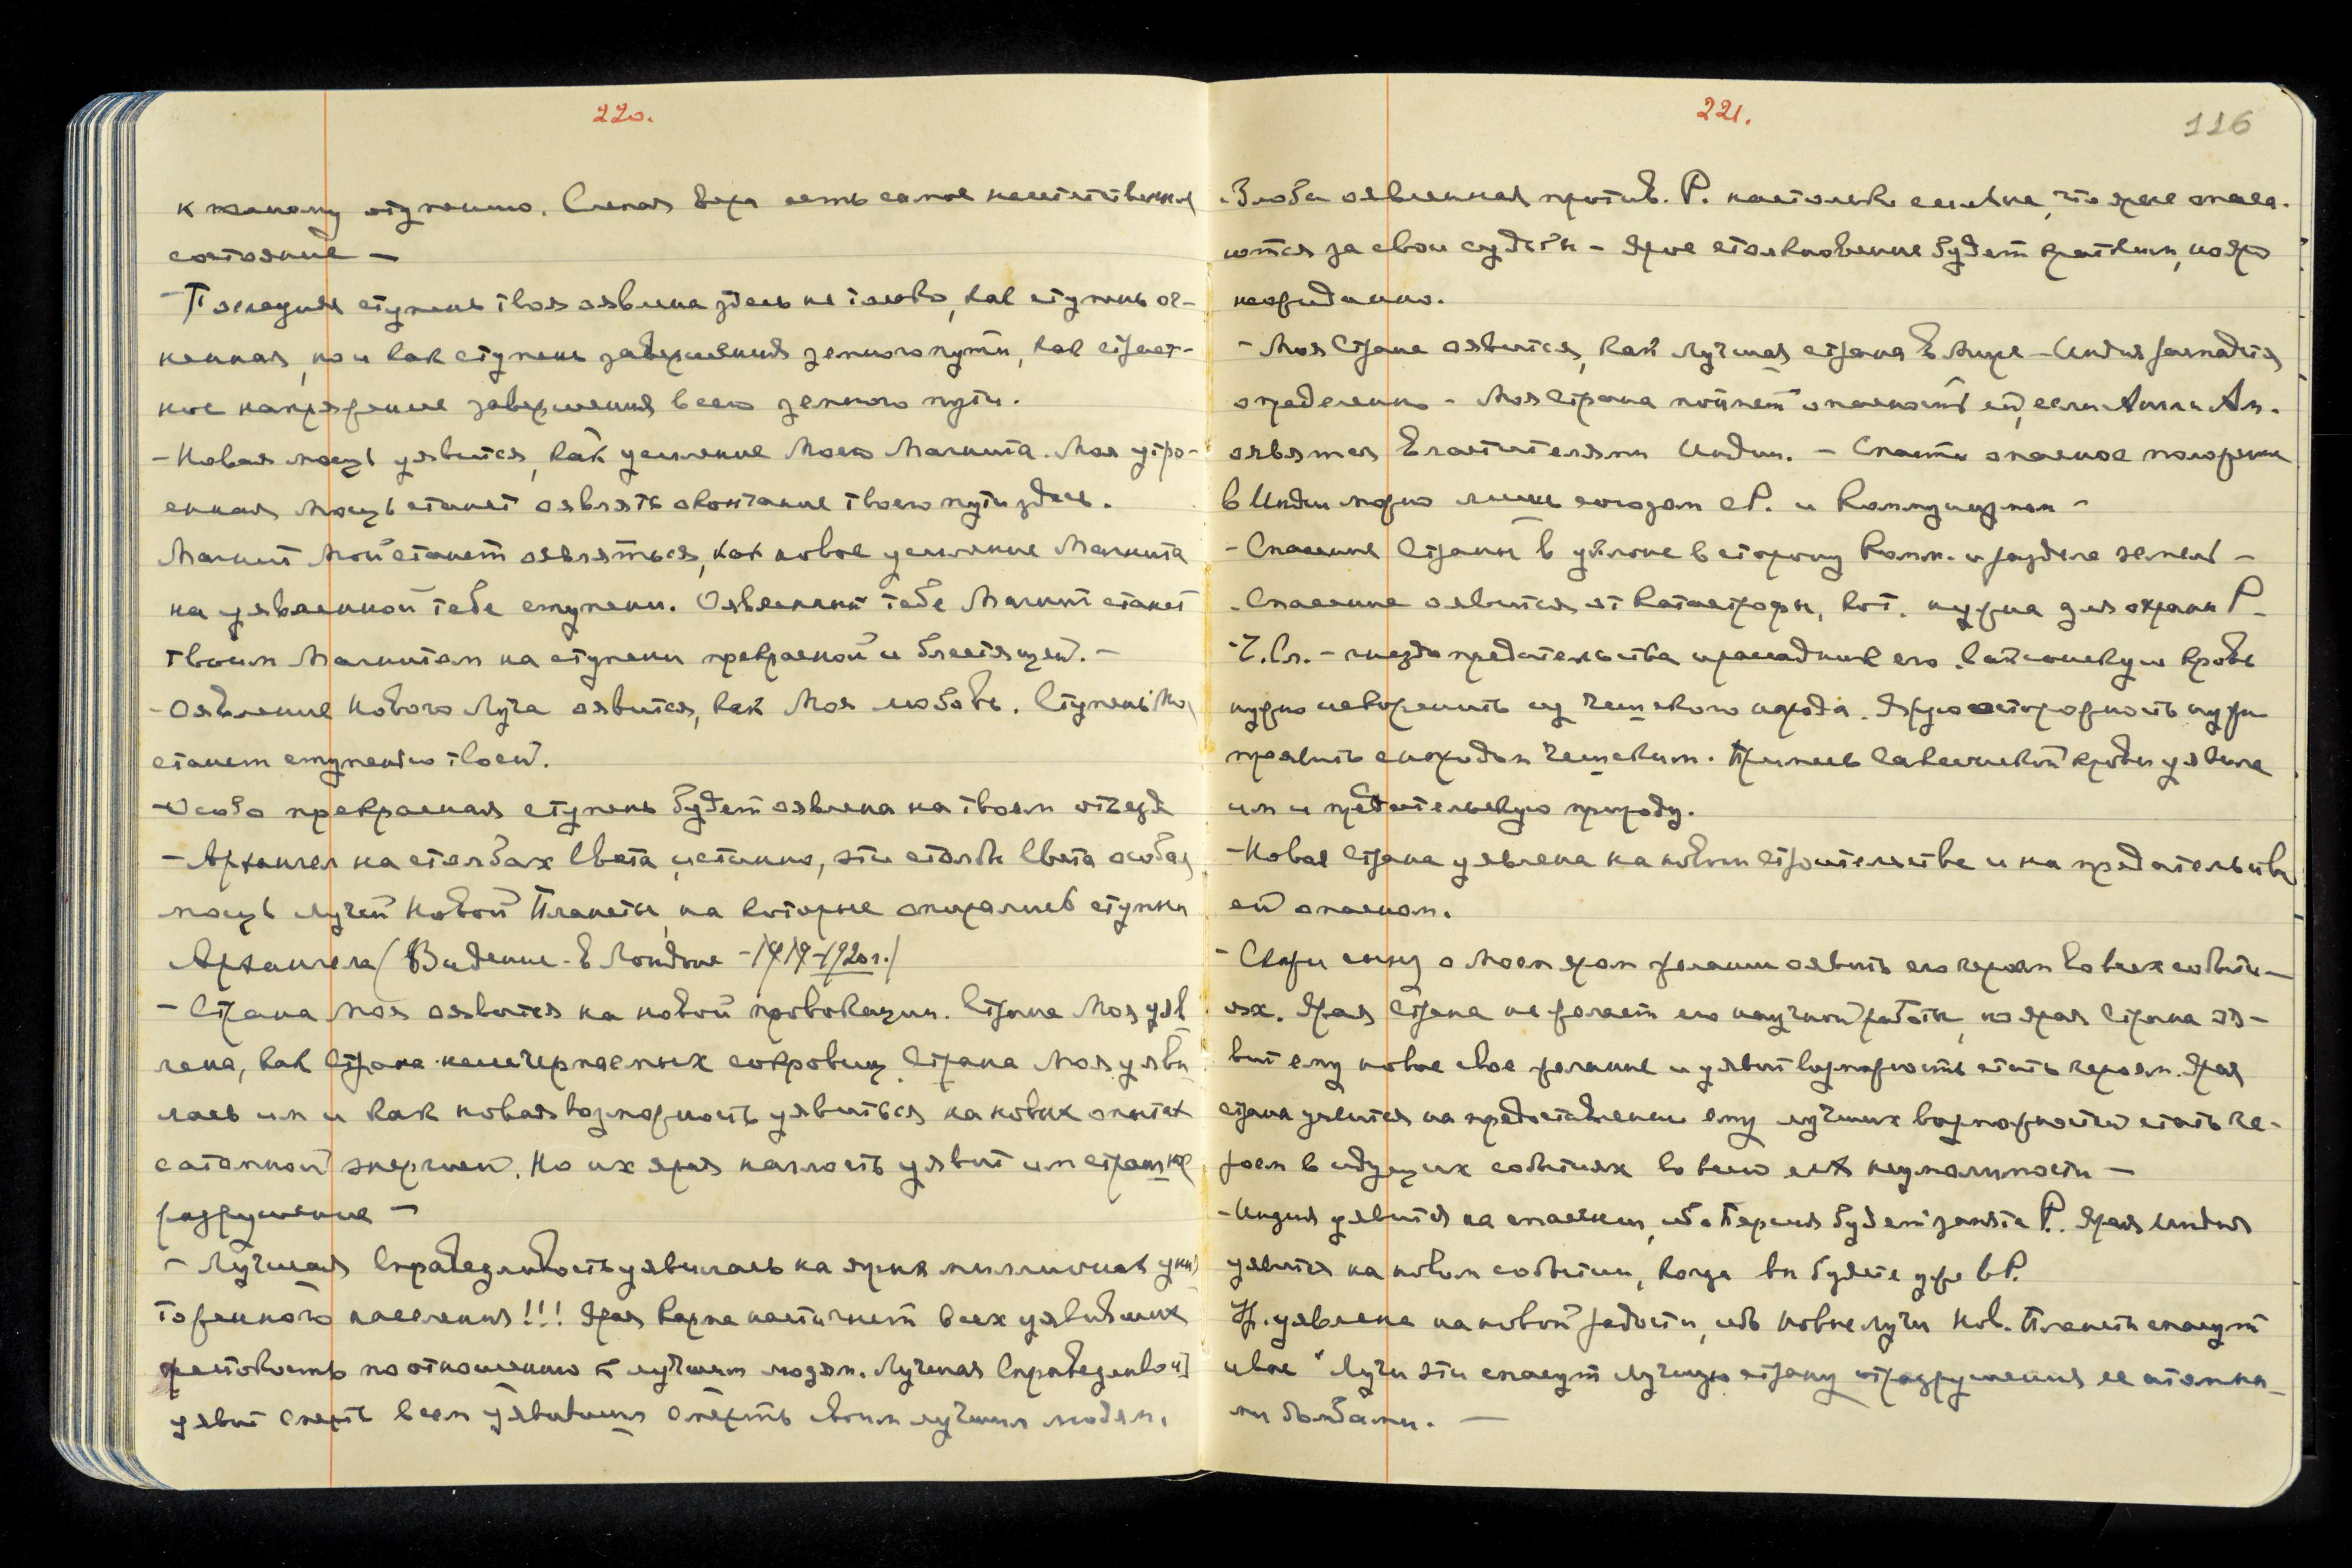 220.
к отупению. Слепая Вера есть самое неестественное
состояние —
Последняя ступень твоя оявлена здесь не только, как ступень ог-
ненная, но и как ступень завершения земного пути, как
ное напряжение завершения всего земного пути.
— Новая мощь уявится, как усиление Моего Магнита. Моя утро-
енная мощь станет оявлять окончание твоего пути здесь.
Магнит Мой станет оявляться, как новое усиление Магнита
на уявленной тебе ступени. Оявленный тебе Магнит станет
твоим Магнитом на ступени прекрасной и блестящей. —
— Оявление Нового Луча оявится, как Моя любовь. Ступень Моя
станет ступенью твоей.
— Особо прекрасная ступень будет оявлена на твоем отъезде
— Архангел на столбах Света, истинно, эти столбы Света особая
мощь лучей Новой Планеты, на которые опирались ступни
Архангела (Видение в Лондоне - 1919-1920 г.)
— Страна Моя оявится на новой провокации. Страна Моя уяв
лена, как Страна неисчерпаемых сокровищ. Страна Моя уяви
лась им и как новая возможность уявиться на новых опытах
с атомной энергией. Но их ярая наглость уявит им страшное
разрушение —
— Лучшая Справедливость уявилась на миллионах унич
тоженного населения!!! Ярая Карма настигнет всех уявивших
жестокость по отношению к лучшим людям. Лучшая Справедливость
уявит смерть всем уявившим смерть своим лучшим людям.
221.
116
— Злоба оявленная против Р. настолько сильна, что ярые опаса-
ются за свои судьбы — Ярое столкновение будет кратким, но яро
неожиданно.
— Моя Страна оявится, как лучшая страна в Мире — Индия распадется
определенно — Моя Страна поймет опасность ей, если Англ. и Ам.
оявятся Властителями Индии. — Спасти опасное положение
в Индии можно лишь союзом с Р. и Коммунизмом —
— Спасение Страны в уклоне в сторону Комм. и раздела земель —
— Спасение оявится от катастрофы, кот. нужна для охраны Р.
— Ч. Сл. — гнездо предательства и его. Саксонскую кровь
нужно искоренить из Чешского народа. Ярую осторожность нужно
проявить с народом Чешским. Примесь Саксонской крови уявила
им и предательскую природу.
— Новая Страна уявлена на новом строительстве и на предательстве
ей опасном.
— Скажи сыну о Моем яром желании оявить его героем во всех событи-
ях. Ярая Страна не желает его научной работы, но ярая Страна оя-
вит ему новое свое желание и уявит возможность стать героем. Ярая
страна уявится на предоставлении ему лучших возможностей стать ге-
роем в идущих событиях во всей их неумолимости —
— Индия уявится на спасении, ибо Персия будет занята Р. Ярая Индия
уявится на новом событии, когда вы будете уже в Р.
Ур. уявлена на новой радости, ибо новые лучи Нов. Планеты спасут
Лучи эти спасут лучшую страну от разрушения ее атомны-
ми бомбами. —